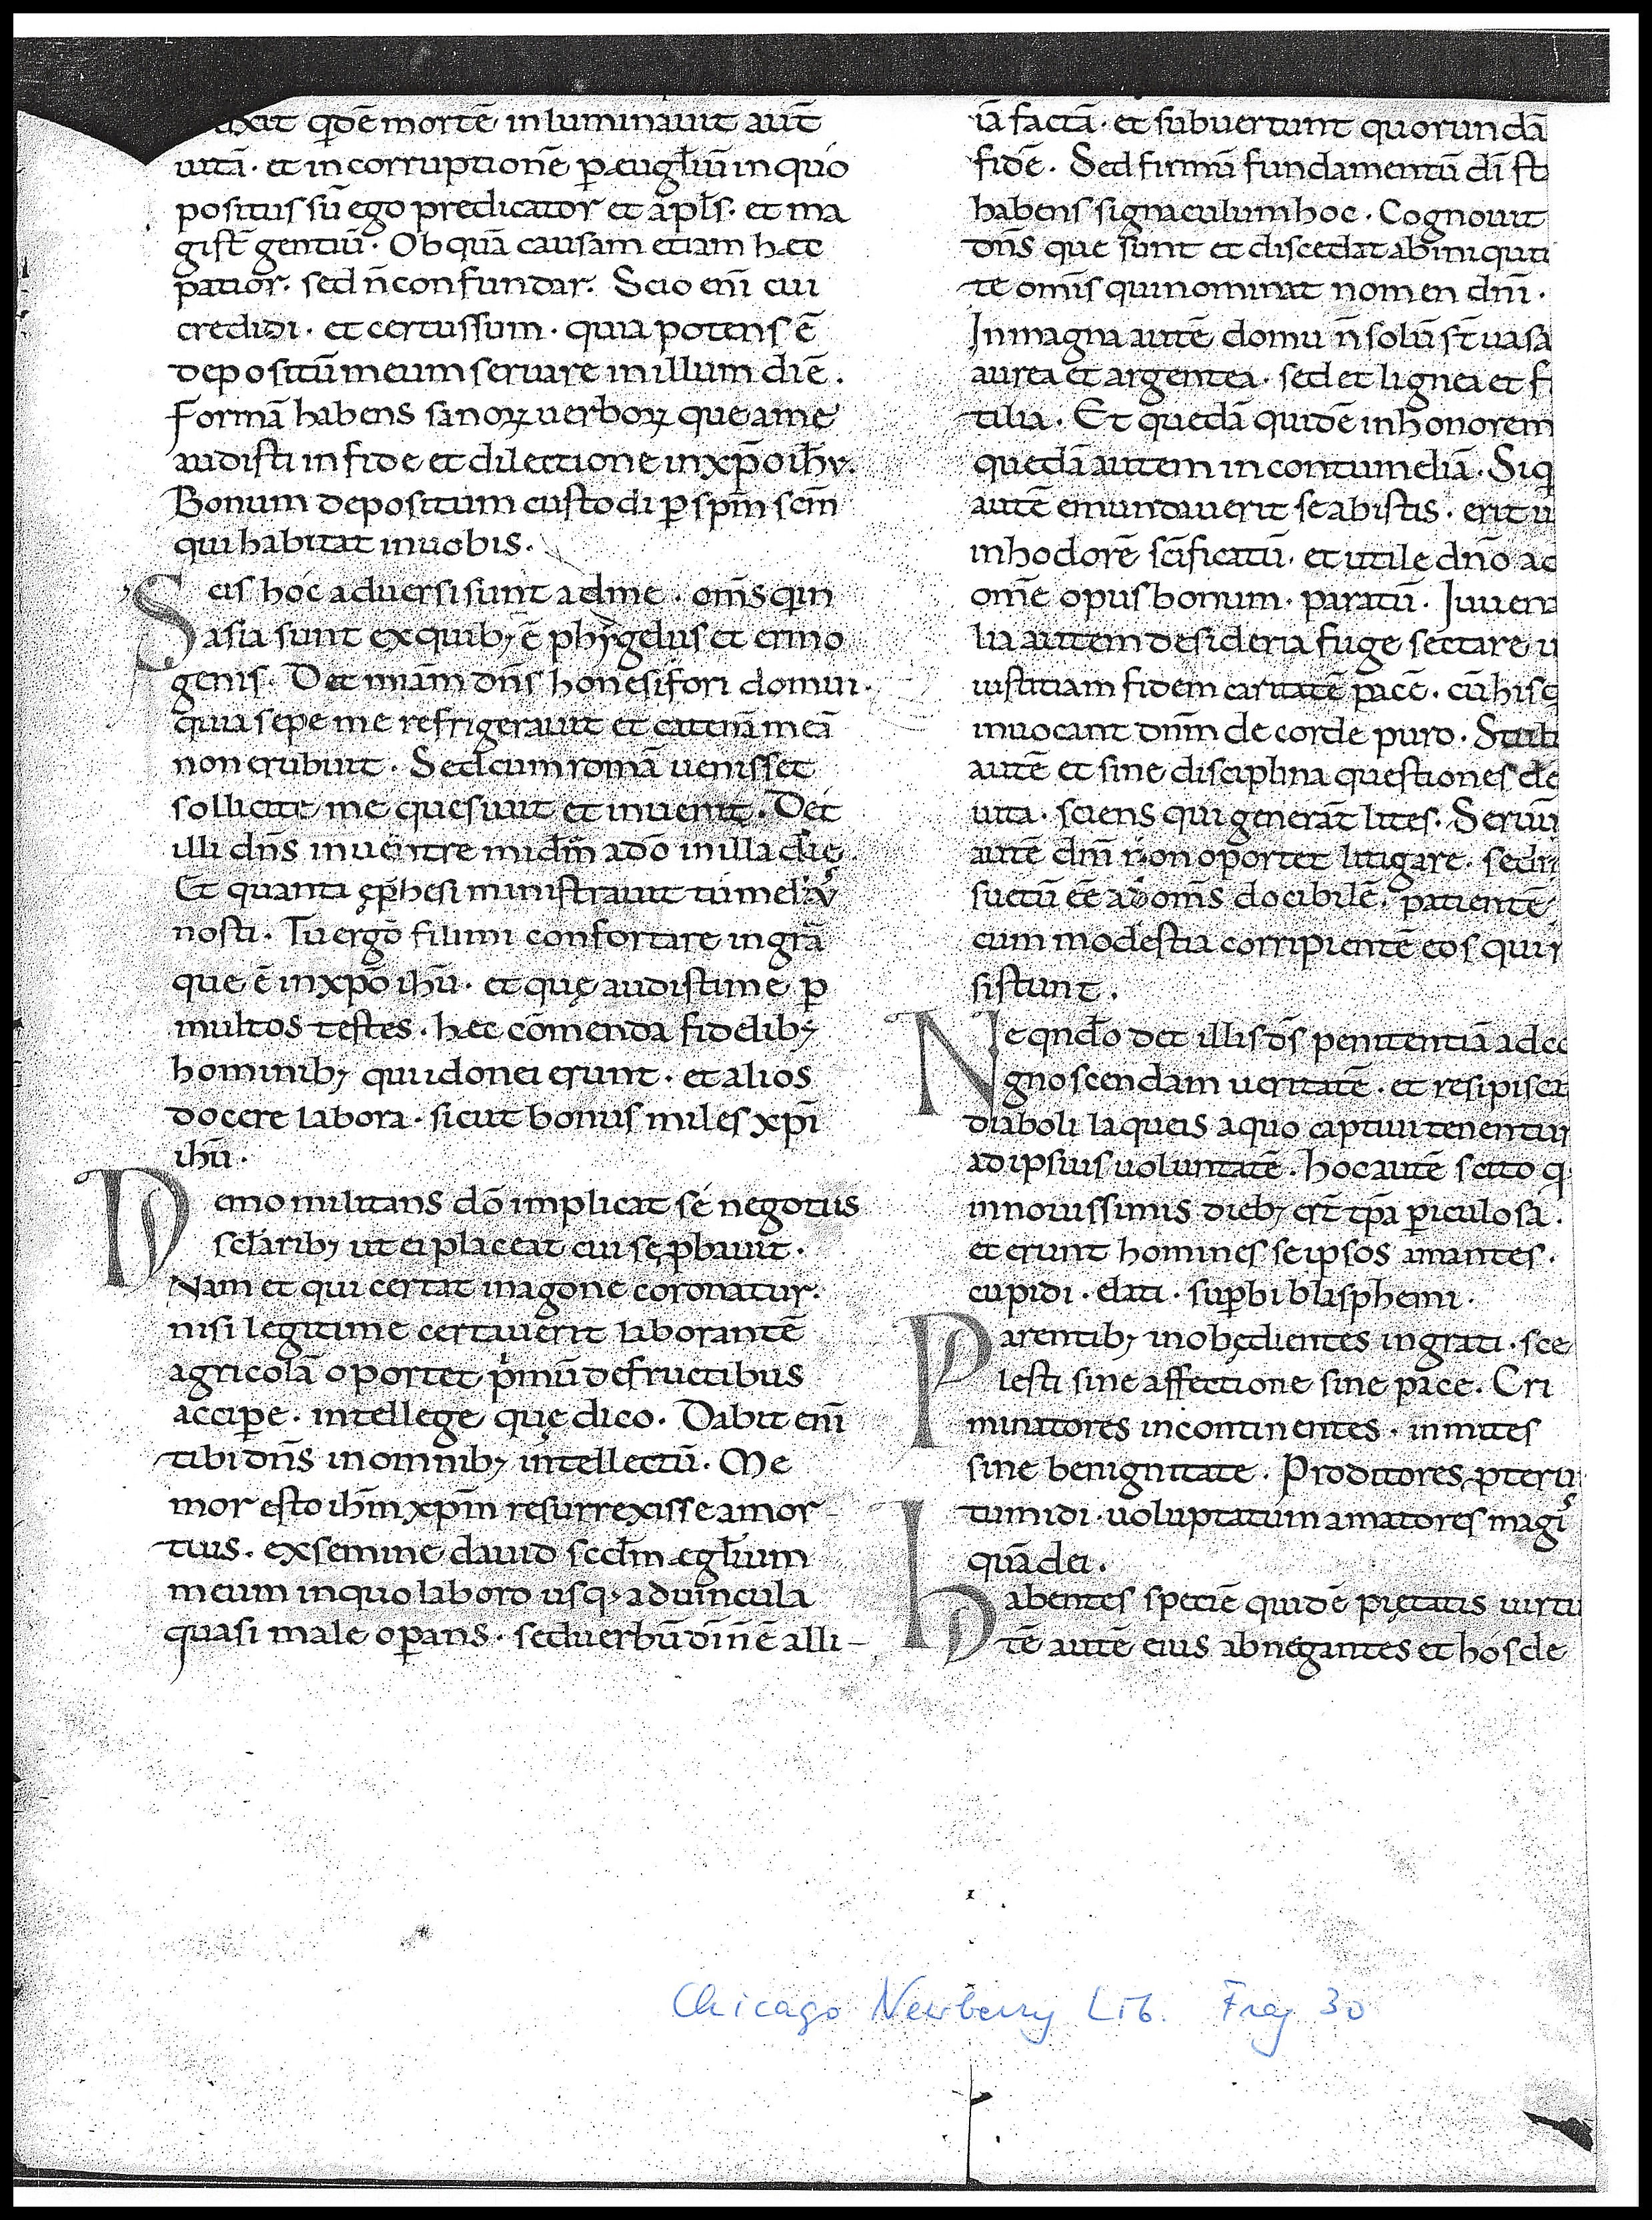 uxit qdē mortē inluminauit aut̄
uitā · et incorruptionē ꝑ euglīū in quo
positus sū ego predicator et apl̄s · et ma
gist̄ gentiū · Ob quā causam etiam hęc
patior · sed n̄ confundar · Scio enī cui
credidi · et certus sum · quia potens ē
depositū meum seruare in illum diē ·
formā habens sanoꝝ uerboꝝ que a me
audisti in fide et dilectione in xp̄o ih̄u ·
Bonum depositum custodi ꝑ sp̄m sc̄m
qui habitat in uobis ·
Scis hoc aduersi sunt ad me · om̄s q̄ in
asia sunt ex quibꝫ ē phẏgelus et ermo
genis · Det miām dn̄s honesifori domui ·
quia sepe me refrigerauit et catenā meā
non erubuit · Sed cum romā uenisset
sollicite me quesiuit et inuenit · Det
illi dn̄s inuenire mid̄m a dō in illa die ·
Et quanta ephesi ministrauit tu meli᷒
nosti · Tu ergo fili mi confortare in grā
que ē in xp̄o ih̄u · et quę audisti me ꝑ
multos testes · hęc cōmenda fidelibꝫ
hominibꝫ qui idonei erunt · et alios
docere labora · sicut bonus miles xp̄i
ih̄u ·
Nemo militans dō implicat se negotiis
sc̄laribꝫ ut ei placeat cui se ꝓbauit ·
Nam et qui certat in agone coronatur ·
nisi legitime certauerit laborantē
agricolā oportet pͥmū de fructibus
acciꝑe · intellege quę dico · Dabit enī
tibi dn̄s in omnibꝫ intellectū · Me
mor esto ih̄m xp̄m resurrexisse a mor
tuis · ex semine dauid sc̄dm egl̄ium
meum in quo laboro usqꝫ ad uincula
quasi male oꝑans · sed uerbū dī n̄ ē alli-
iā factā · et subuertunt quorundā
fidē · Sed firmū fundamentū dī st
habens signaculum hoc · Cognouit
dn̄s que sunt et discedat ab iniquti
te om̄is qui nominat nomen dn̄i ·
In magna autē domu n̄ solū st̄ uasa
aurea et argentea · sed et lignea et fi
tilia · Et quedā quidē in honorem
quedā autem in contumeliā · Si q
autē emundauerit se ab istis · erit u
in hodorē sc̄ificatū · et utile dn̄o ad
om̄e opus bonum · paratū · Iuuena
lia autem desideria fuge sectare u
iustitiam fidem caritatē pacē · cū his q
inuocant dn̄m de corde puro · Stult
autē et sine disciplina questiones de
uita · sciens qui generāt lites · Seruū
autē dn̄i non oportet litigare · sed m
suetū eē ad om̄s docibilē · patientē
cum modestia corripientē eos qui r
sistunt ·
Ne qn̄do det illis d̄s penitentiā ad co
gnoscendam ueritatē · et resipisca
diaboli laqueis a quo captiui tenentur
ad ipsius uoluntatē · hoc autē scito q
in nouissimis diebꝫ ert̄ tp̄a ꝑiculosa ·
et erunt homines seipsos amantes ·
cupidi · elati · suꝑbi blasphemi ·
Parentibꝫ inobędientes ingrati · sce
lesti sine affectione sine pace · Cri
minatores incontinentes · inmites
sine benignitate · Proditores ꝓterui
tumidi · uoluptatum amatores magi᷒
quā dei ·
habentes speciē quidē pietatis uirtu
tē autē eius abnegantes et hos de
Chicago Newberry Lib. Frag 30